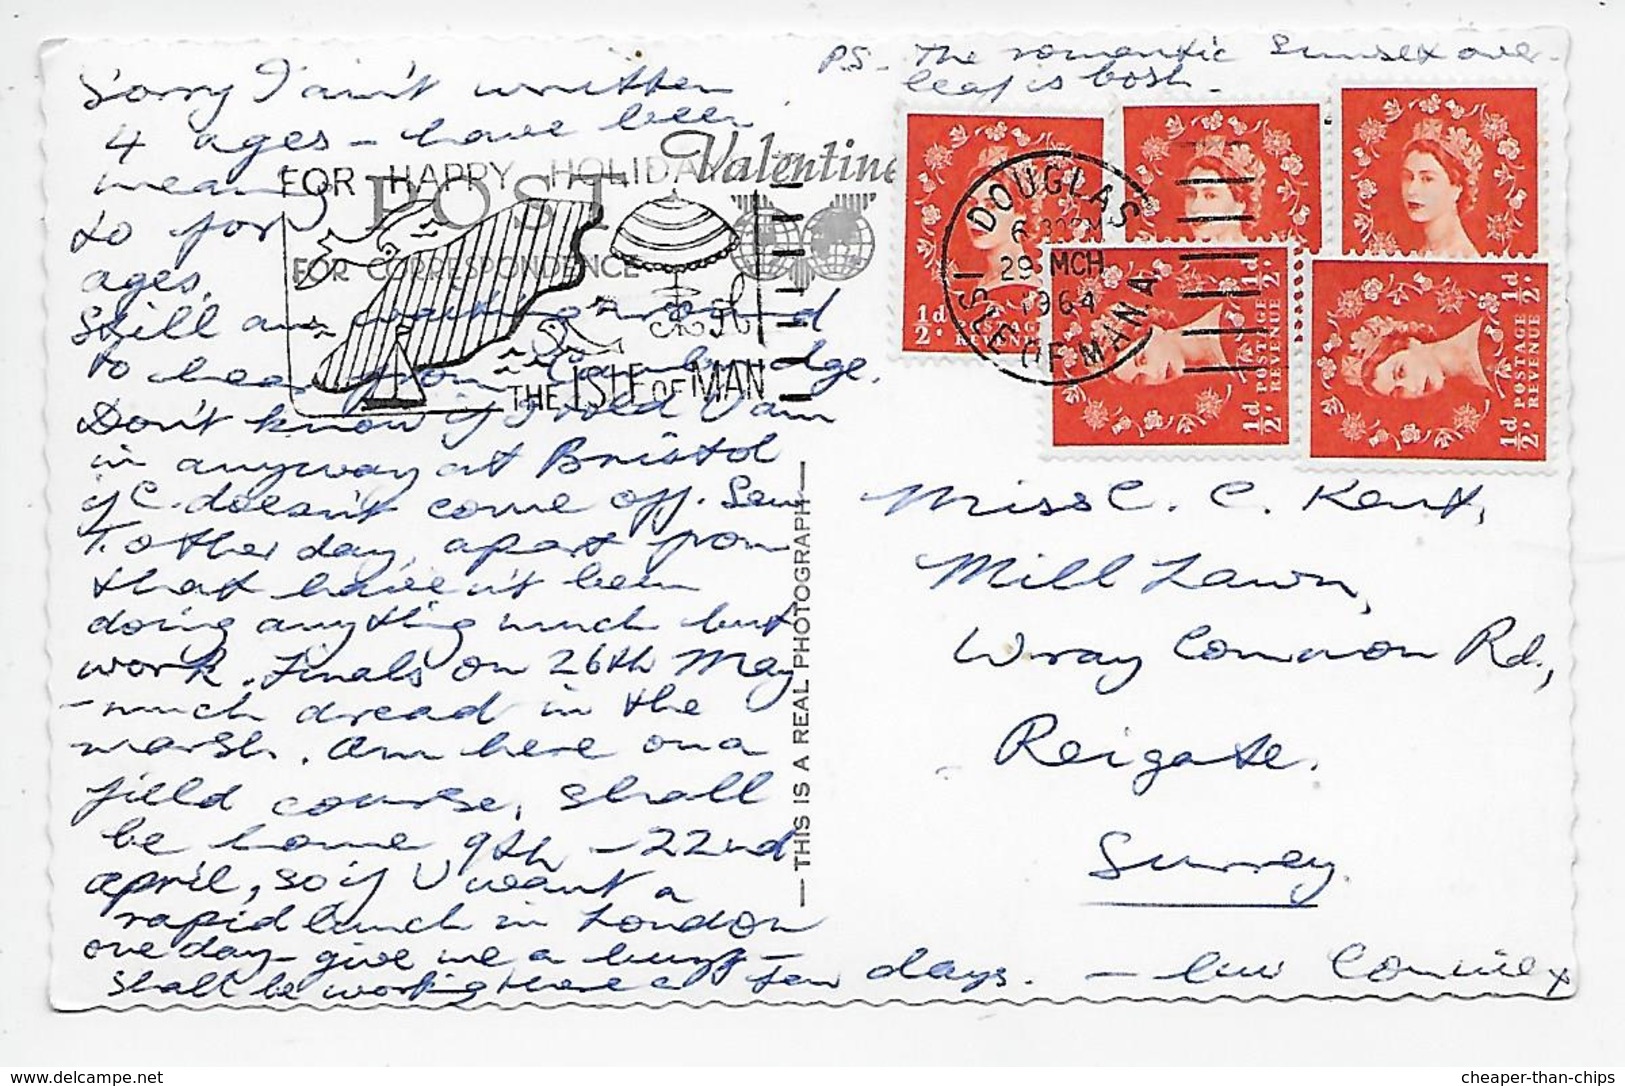 P.S. - The romantic sunset over-
leaf is bosh -
Sorry I ain't written
4 ages - have been
meaning
to for
ages.
Still am waiting around
to hear from Cambridge.
Don't know if I told U am
in anyway at Bristol
if C. doesn't come off. Saw
T. other day, apart from
that haven't been
doing anything much but
work. Finals on 26th May
- much dread in the
marsh. Am here on a
field course, shall
be home 9th - 22nd
April, so if U want a
rapid lunch in London
one day - give me a buzz -
shall be working there a few days. - luv Connie x
Valentine's
POST
FOR CORRESPONDENCE
FOR HAPPY HOLIDAYS
THE ISLE OF MAN
DOUGLAS
6.30PM
29 MCH
1964
ISLE OF MAN
1/2d. POSTAGE REVENUE
1/2d. POSTAGE REVENUE
1/2d. POSTAGE REVENUE
— THIS IS A REAL PHOTOGRAPH —
Miss C. C. Kent,
Mill Lawn,
Wray Common Rd.,
Reigate.
Surrey.
www.delcampe.net
cheaper-than-chips